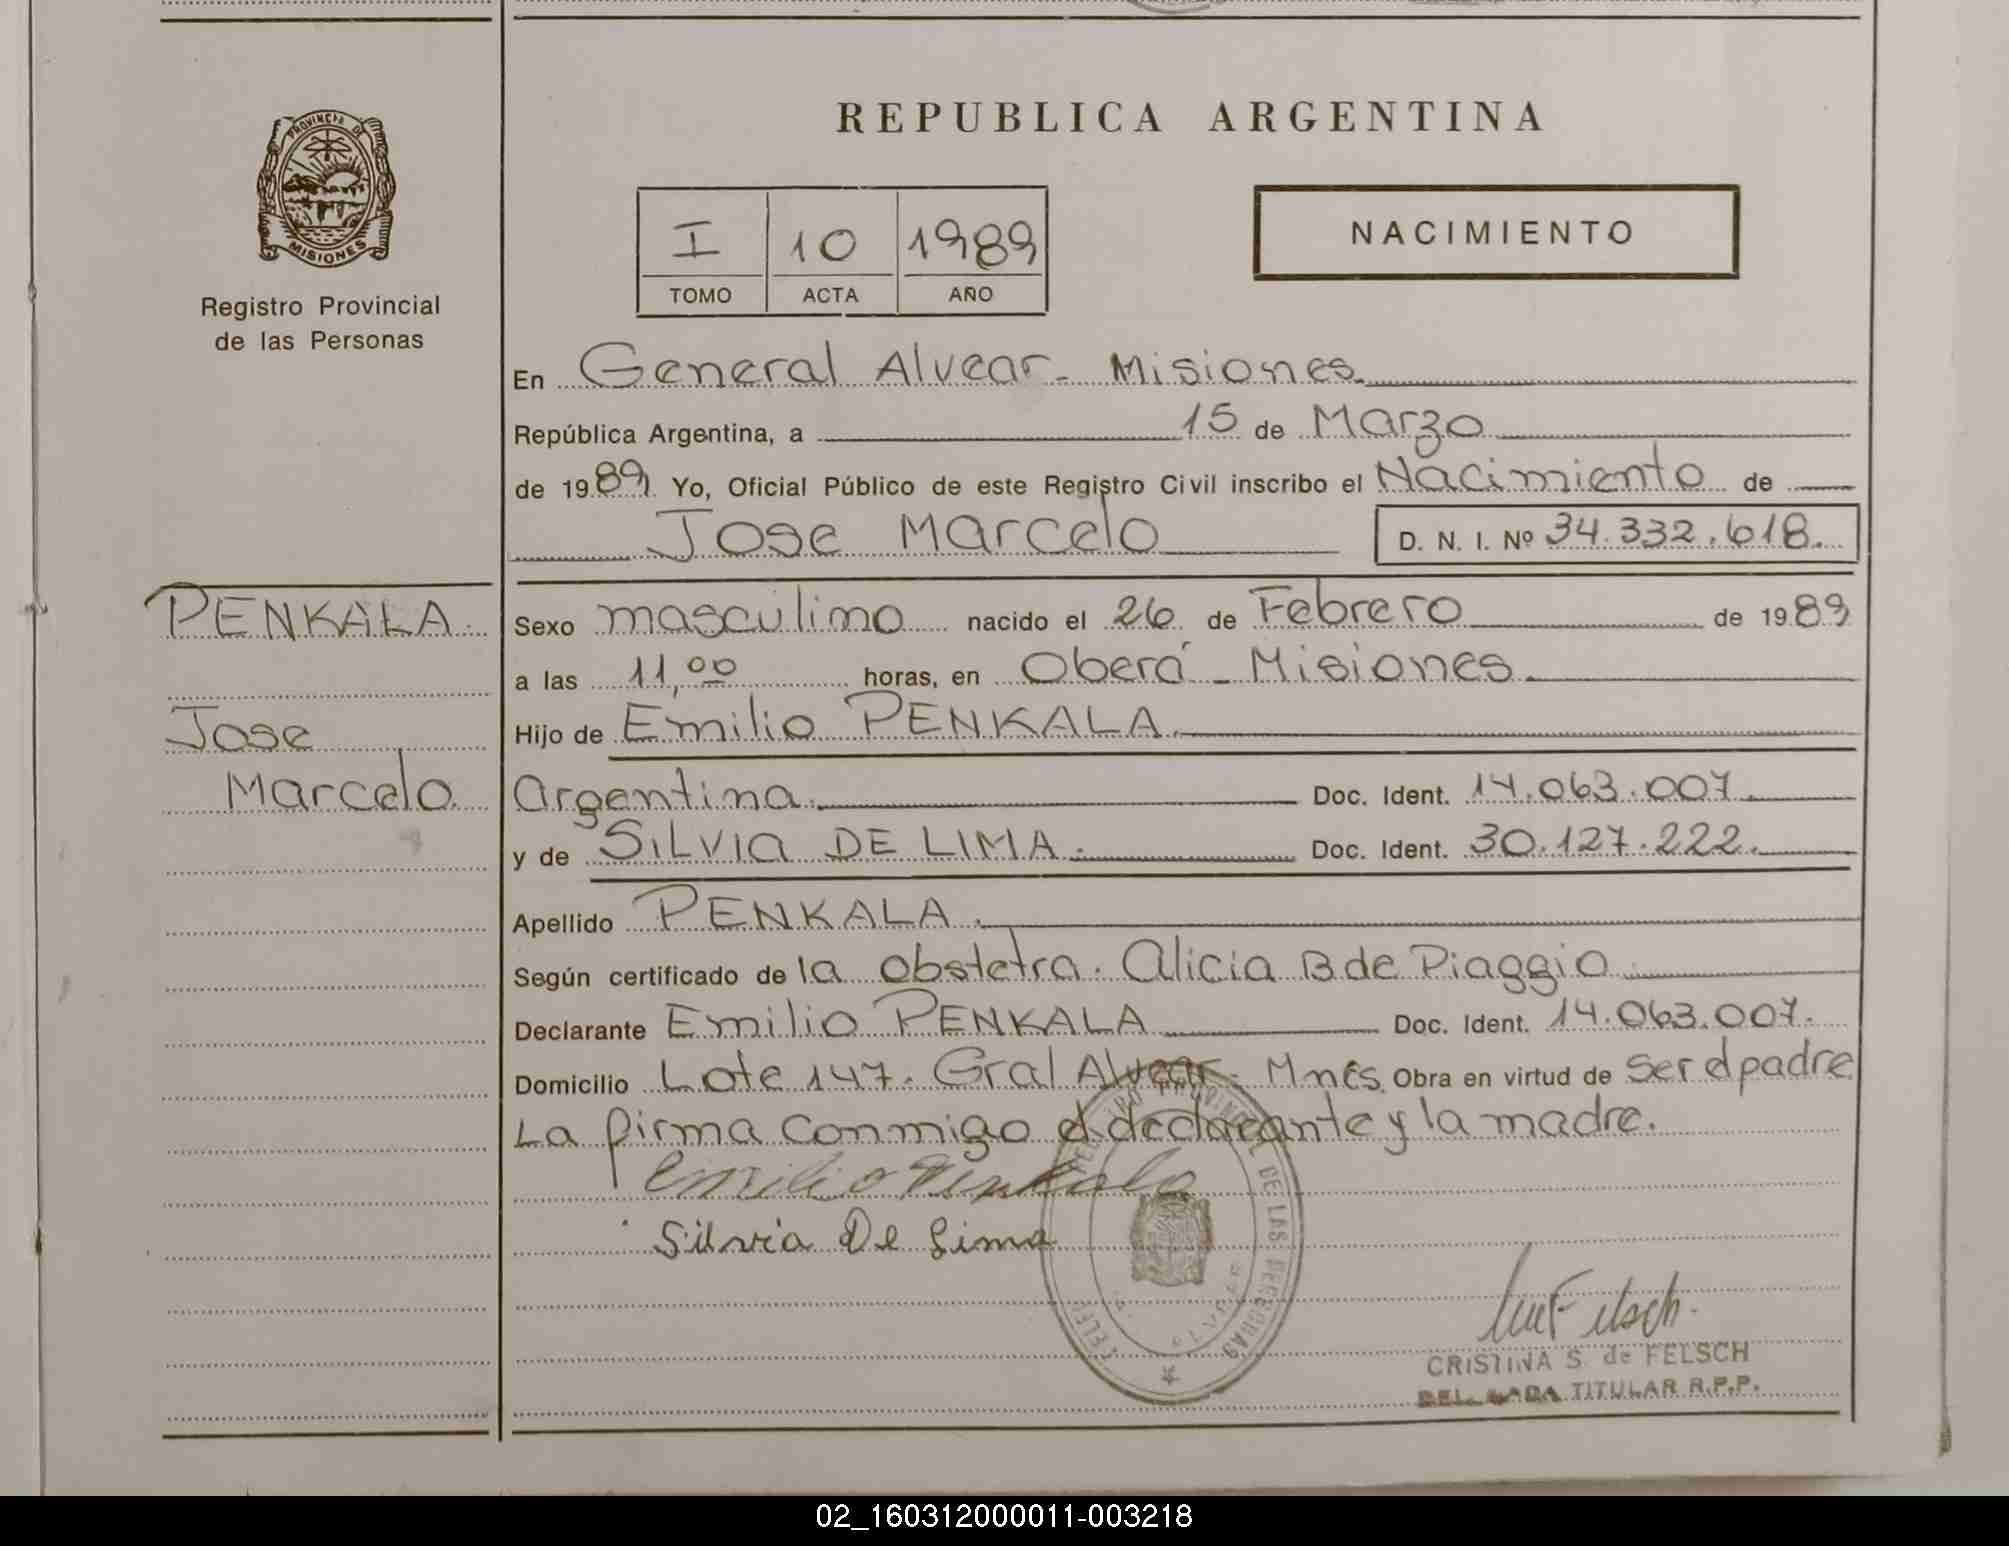 REPUBLICA ARGENTINA
PROVINCIA DE
MISIONES
Registro Provincial
de las Personas
I 10 1989
TOMO ACTA AÑO
NACIMIENTO
En General Alvear - Misiones
República Argentina, a 15 de Marzo
de 1989. Yo, Oficial Público de este Registro Civil inscribo el Nacimiento de
Jose Marcelo D. N. I. Nº 34.332.618.
PENKALA.
Jose
Marcelo
Sexo masculino nacido el 26 de Febrero de 1989
a las 11,00 horas, en Oberá - Misiones.
Hijo de Emilio PENKALA.
Argentina. Doc. Ident. 14.063.007.
y de SILVIA DE LIMA. Doc. Ident. 30.127.222.
Apellido PENKALA.
Según certificado de la obstetra. Alicia B de Piaggio
Declarante Emilio PENKALA Doc. Ident. 14.063.007.
Domicilio Lote 147. Gral Alvear - Mnes. Obra en virtud de ser el padre
La firma conmigo el declarante y la madre.
Emilio Penkala
Silvia De Lima
PROVINCIAL DE LAS PERSONAS
CRISTINA S. de FELSCH
TITULAR R.P.P.
02_160312000011-003218